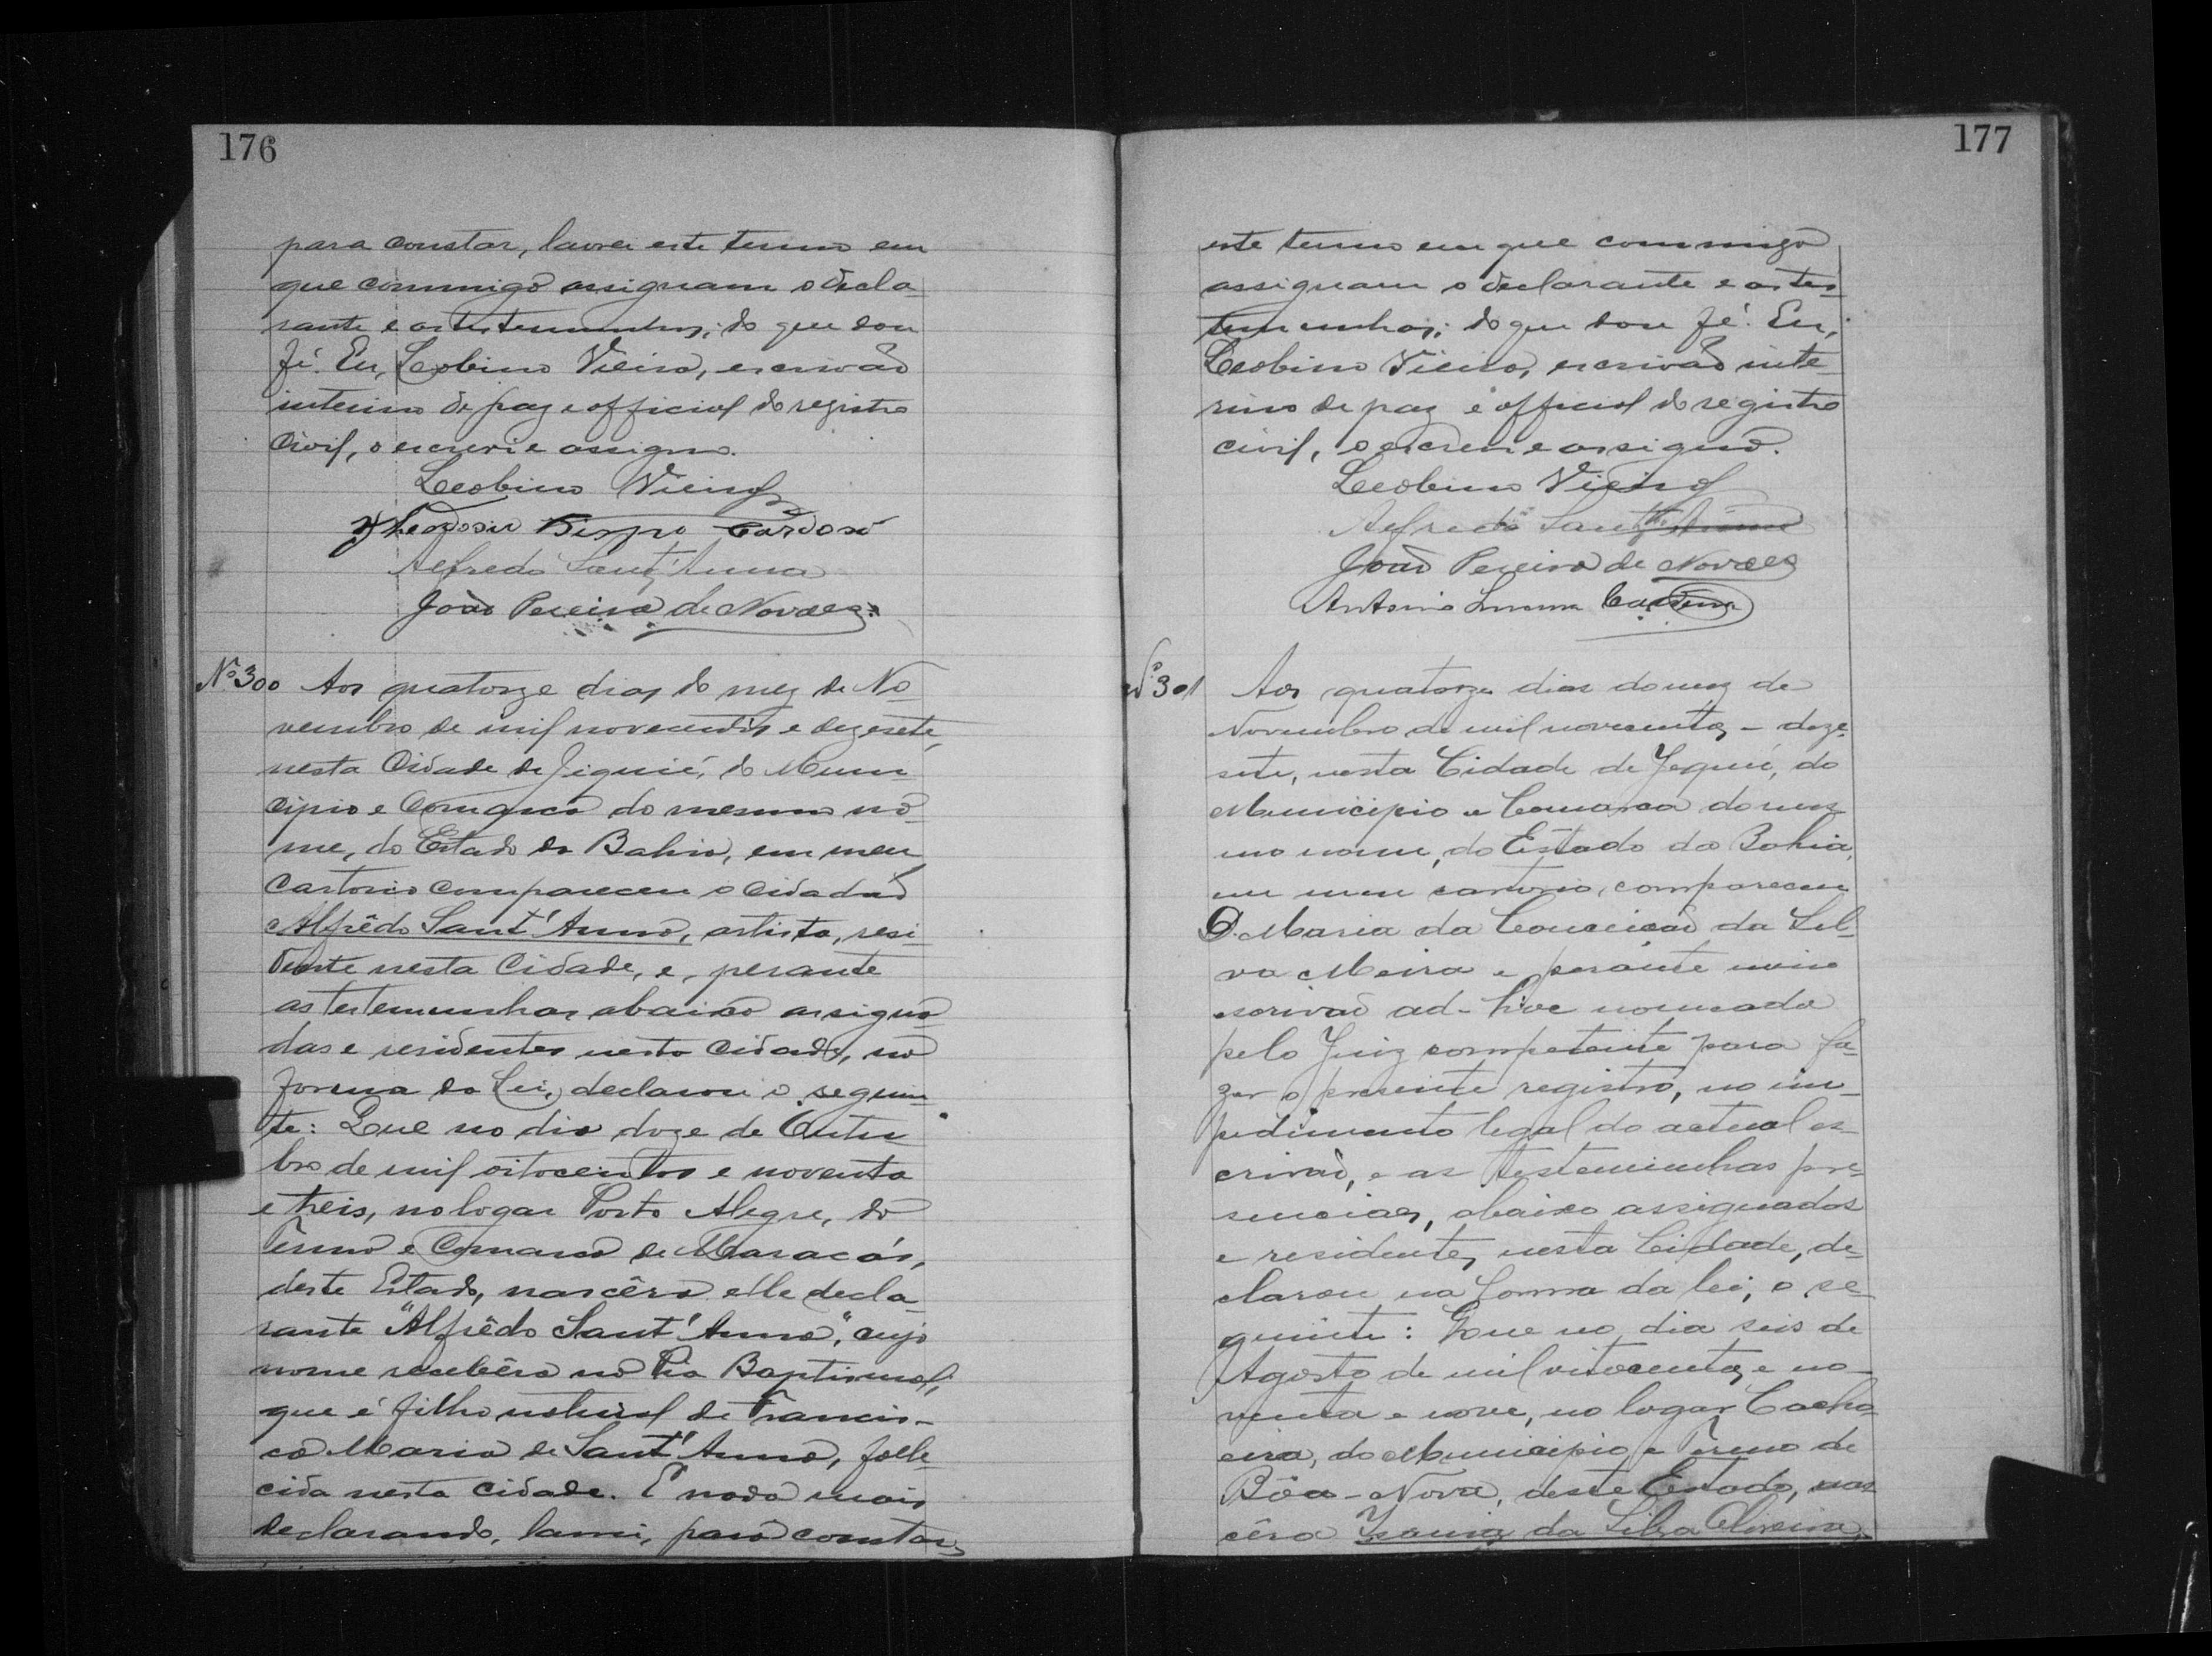 176
para constar, lavrei este termo em
que commigo assignam o decla-
rante e as testemunhas; do que dou
fé. Eu, Leobino Vieira, escrivão
interino de paz e official do registro
Civil, o escrevi e assigno.
Leobino Vieira
Bispo Cardoso
Alfredo Sant'Anna
João Pereira de Novaes
Nº 300 Aos quatorze dias do mez de No-
vembro de mil novecentos e dezesete,
nesta Cidade de Jiquié, do Muni
cipio e Comarca do mesmo no-
me, do Estado da Bahia, em meu
Cartorio compareceu o cidadão
Alfrêdo Sant'Anna, artista, resi-
dente nesta Cidade, e, perante
as testemunhas abaixo assigna-
das e residentes nesta Cidade, na
forma da Lei, declarou o seguin-
te: Que no dia doze de Outu
bro de mil oitocentos e noventa
e treis, no logar Porto Alegre, do
Termo e Comarca de Maracás,
deste Estado, nascêra elle decla-
rante "Alfrêdo Sant'Anna", cujo
nome recebêra na Pia Baptismal,
que é filho natural de Francis-
ca Maria de Sant'Anna, falle-
cida nesta cidade. E nada mais
declarando, lavrei, para constar,
177
este termo em que commigo
assignam o declarante e as tes-
temunhas; do que dou fé. Eu,
Leobino Vieira, escrivão inte-
rino de paz e official do registro
civil, o escrevi e assigno.
Leobino Vieira
Alfredo Sant'Anna
João Pereira de Novaes
Antonio
Nº 301 Aos quatorze dias do mez de
Novembro de mil novecentos e deze-
sete, nesta Cidade de Jequié, do
Municipio e Comarca do mes-
mo nome, do Estado da Bahia,
em meu cartorio, compareceu
D. Maria da Conceição da Sil-
va Meira e perante mim
escrivão ad-hoc nomeado
pelo Juiz competente para fa-
zer o presente registro, no im-
pedimento legal do actual es-
crivão, e as testemunhas pre-
senciaes, abaixo assignados
e residentes nesta Cidade, de-
clarou na forma da lei, o se-
guinte: Que no dia seis de
Agosto de mil oitocentos e no-
venta e nove, no logar Cacho
eira, do Municipio e Termo de
Bôa-Nova, deste Estado, nas
cêra da Silva Oliveira,